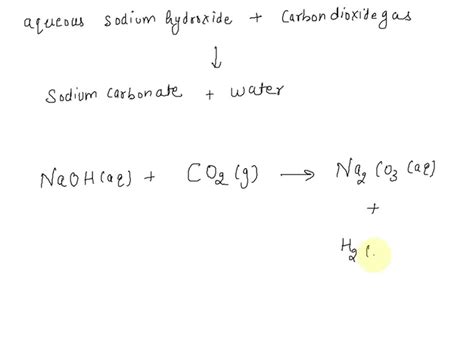 aqueous sodium hydroxide + Carbondioxide gas
↓
Sodium carbonate + water
NaOH(aq) + CO₂(g) → Na₂CO₃(aq)
+
H₂ (